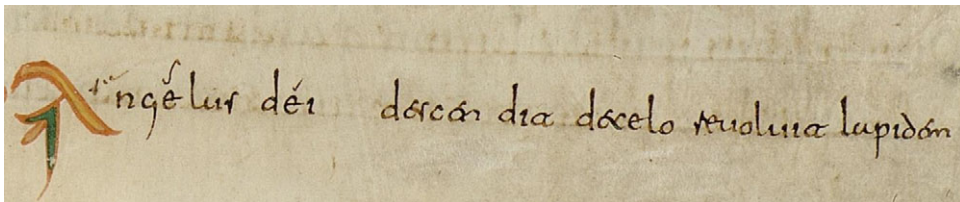 Angelus dei descen dit decelo revoluit lapidem